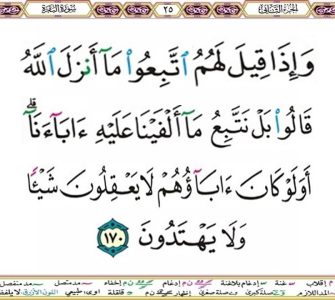 الجزء الثاني ٢٥ سورة البقرة
وَإِذَا قِيلَ لَهُمُ ٱتَّبِعُوا۟ مَآ أَنزَلَ ٱللَّهُ
قَالُوا۟ بَلْ نَتَّبِعُ مَآ أَلْفَيْنَا عَلَيْهِ ءَابَآءَنَآ ۗ
أَوَلَوْ كَانَ ءَابَآؤُهُمْ لَا يَعْقِلُونَ شَيْـًٔا
وَلَا يَهْتَدُونَ ١٧٠